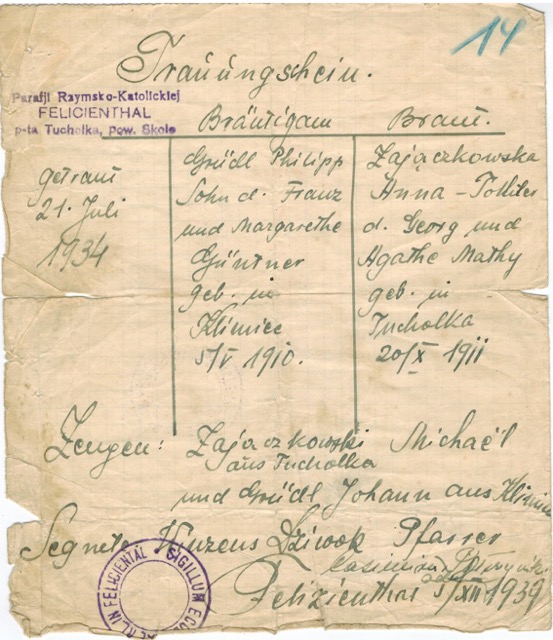 14
Trauungschein.
Parafji Rzymsko-Katolickiej
FELICIENTHAL
p-ta Tucholka, pow. Skole
Bräutigam
Braut.
getraut
21. Juli
1934
Grüdl Philipp
Sohn d. Franz
und Margarethe
Güntner
geb. in
Klimiec
5/V 1910.
Zajączkowska
Anna - Tochter
d. Georg und
Agathe Mathy
geb. in
Tucholka
20/X 1911
Zeugen: Zajaczkowski Michaël
aus Tucholka
und Grüdl Johann aus Klimiec
Segnete Dziwok Pfarrer
Casimirus
Felizienthal 5/XII 1939
SIGILLUM IN FELICIENTAL